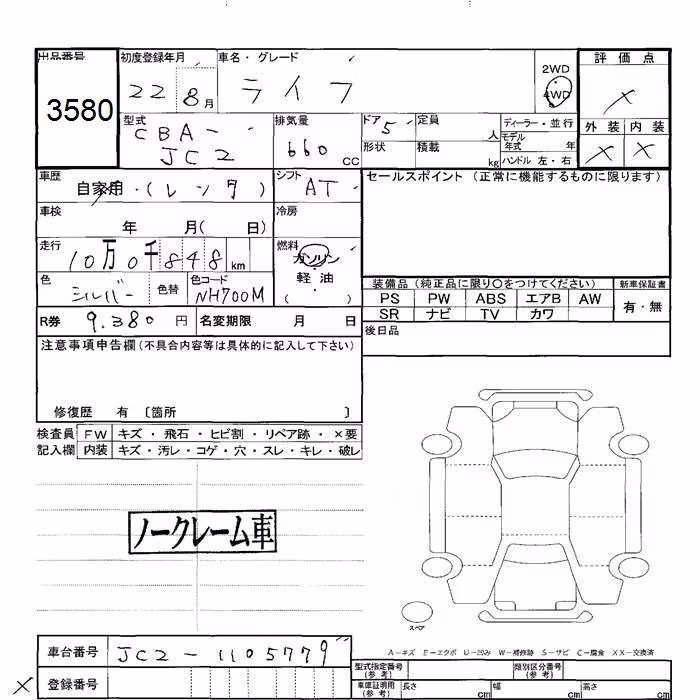 出品番号 初度登録年月 車名・グレード 2WD 評価点
3580 22 8月 ライフ 4WD ×
型式 CBA- 排気量 ドア 5 定員 人 ディーラー・並行 外装 内装
JC2 660 CC 形状 積載 kg モデル年式 年 × ×
ハンドル 左・右
車歴 自家用・(レンタ) シフト AT セールスポイント(正常に機能するものに限ります)
車検 年 月( 日) 冷房
走行 10万0千848km 燃料 ガソリン・
軽油
( )
色 シルバー 色替 色コード NH700M 装備品(純正品に限り〇をつけてください) 新車保証書
PS PW ABS エアB AW 有・無
SR ナビ TV カワ
R券 9.380 円 名変期限 月 日 後日品
注意事項申告欄(不具合内容等は具体的に記入して下さい)
修復歴 有 〔箇所 〕
検査員 FW キズ・飛石・ヒビ割・リペア跡・×要
記入欄 内装 キズ・汚レ・コゲ・穴・スレ・キレ・破レ
ノークレーム車
スペア
A-キズ E-エクボ U-凹み W-補修跡 S-サビ C-腐食 XX-交換済
車台番号 JC2-1105779 型式指定番号(参考) 類別区分番号(参考)
× 登録番号 車庫証明用(参考) 長さ cm 幅 cm 高さ cm